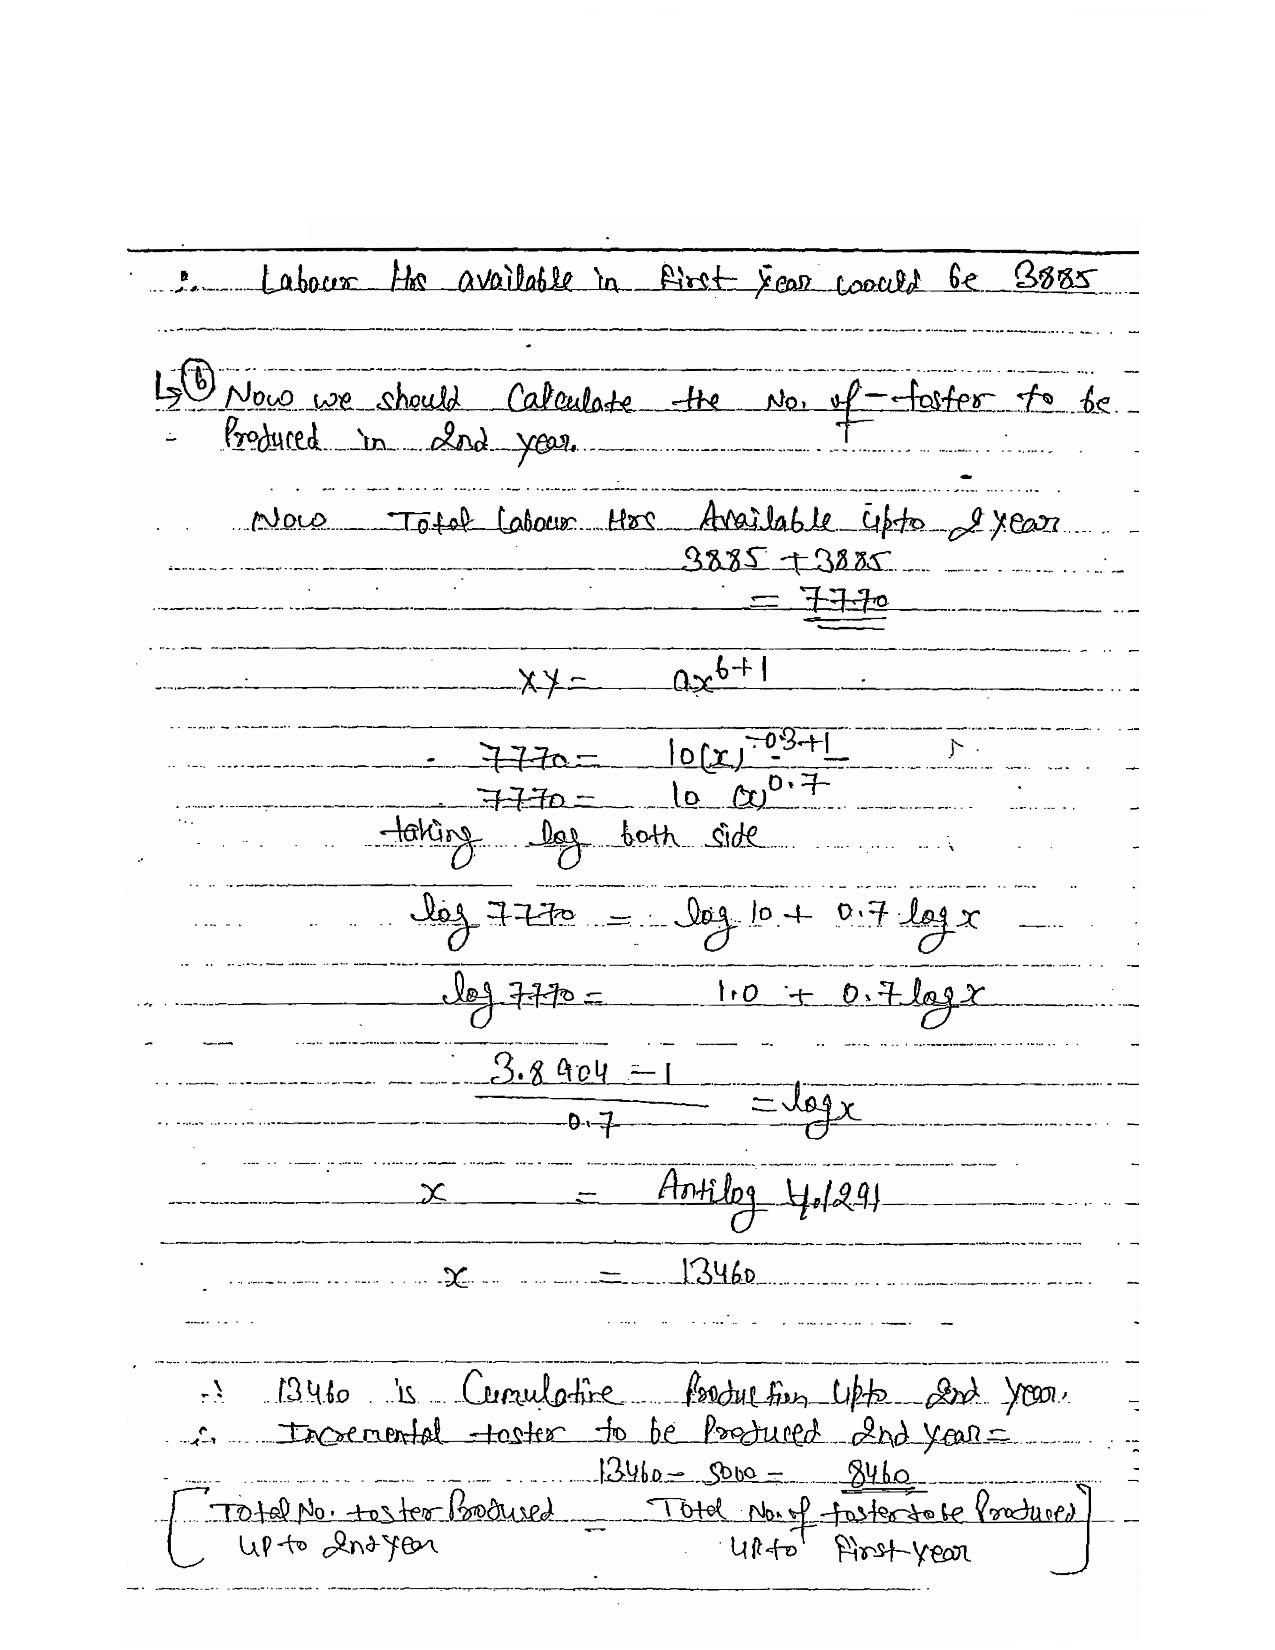 ∴ Labour Hrs available in First Year would be 3885
↳ (b) Now we should Calculate the No. of toster to be
Produced in 2nd year.
Now Total Labour Hrs Available upto 2 year
3885 + 3885
= 7770
xy = ax^b+1
7770 = 10(x)^-0.3+1
7770 = 10 (x)^0.7
taking log both side
log 7770 = log 10 + 0.7 log x
log 7770 = 1.0 + 0.7 log x
3.8904 - 1
= log x
0.7
x = Antilog 4.1291
x = 13460
∴ 13460 is Cumulative Production upto 2nd year.
∴ Incremental toster to be Produced 2nd year =
13460 - 5000 = 8460
[Total No. toster Prodused - Total No. of toster to be Produced]
up to 2nd year up to First year